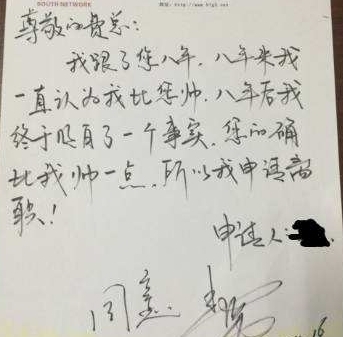 SOUTH NETWORK
尊敬的费总：
我跟了您八年，八年来我
一直认为我比您帅，八年后我
终于正自了一个事实，您的确
比我帅一点，所以我申请离
职！
申请人：
同意
16